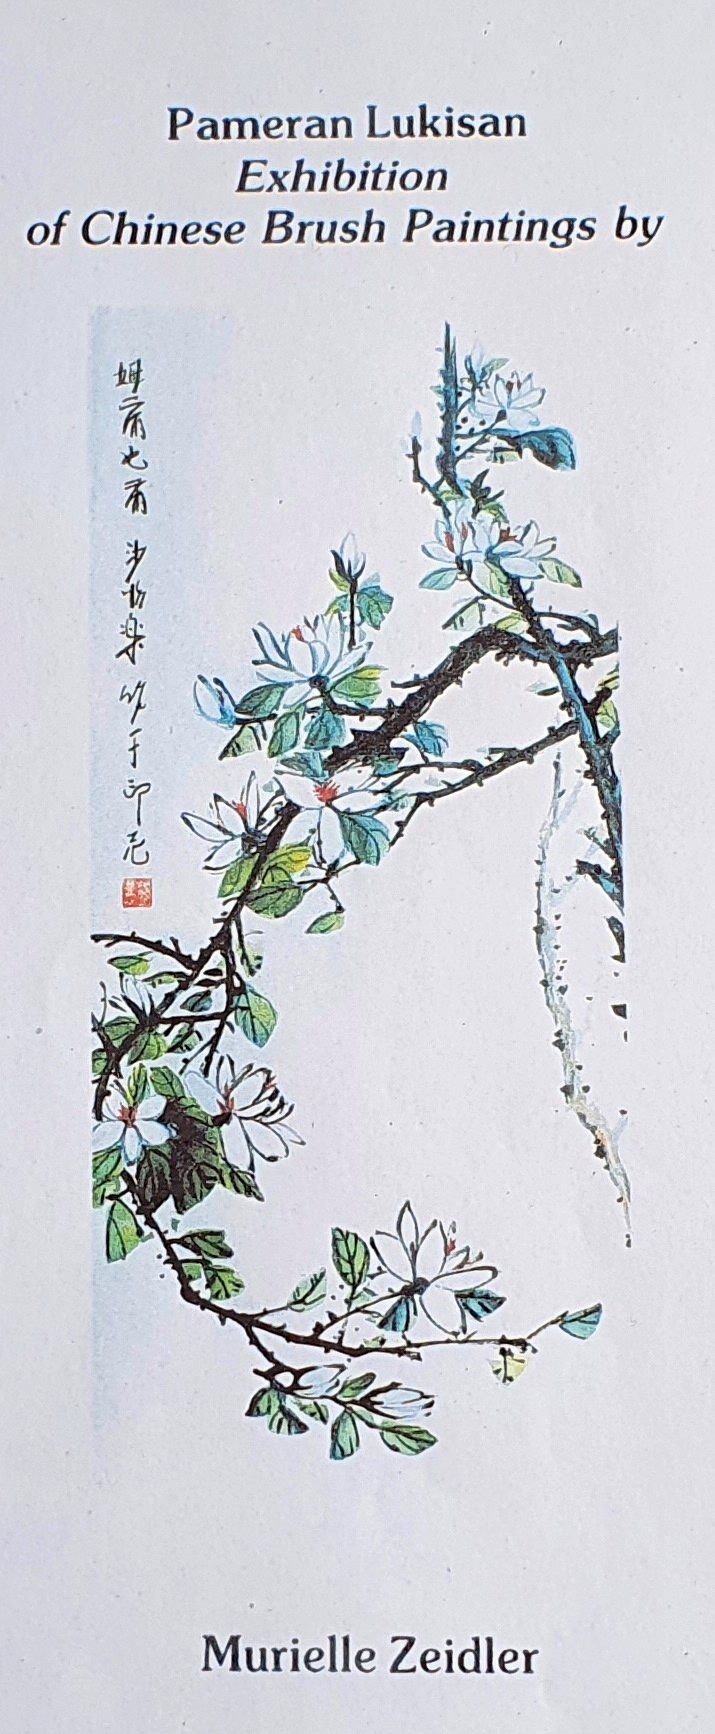 Pameran Lukisan
Exhibition
of Chinese Brush Paintings by
于印尼
Murielle Zeidler